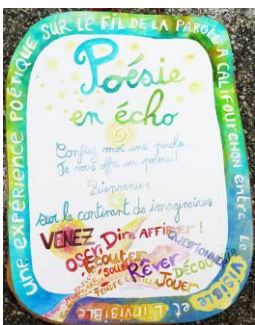 UNE EXPÉRIENCE POÉTIQUE SUR LE FIL DE LA PAROLE A CALIFOUTCHON entre le VISIBLE et L'INVISIBLE
Poésie
en écho
Confiez moi une parole.
Je vous offre un poème!
Bienvenue
sur le continent des imaginaires
VENEZ Dire Affirmer!
OSER! QUESTIONNER
Écouter
Rêver DÉCOUVRIR
Jouer